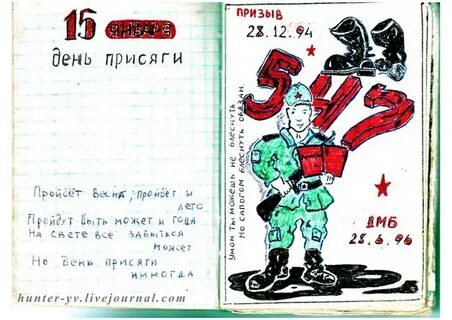 15 ЯНВАРЯ
день присяги
Пройдёт весна, пройдет и
лето
Пройдут быть может и года
На свете всё забыться
может
Но день присяги
никогда
hunter-yv.livejournal.com
ПРИЗЫВ
28.12.94
547
Умом ты можешь не блеснуть
Но сапогом блеснуть обязан.
ДМБ
28.6.96